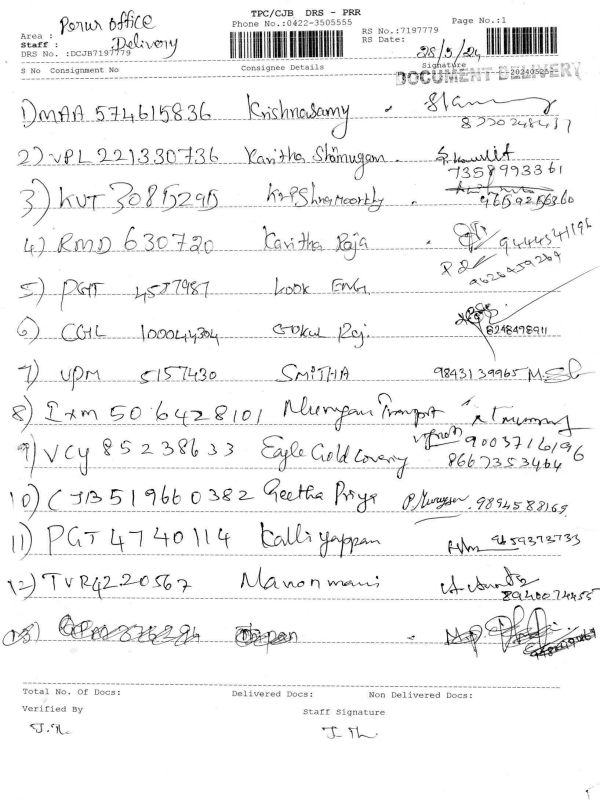 TPC/CJB DRS - PRR
Perur office
Phone No.:0422-3505555
Page No.:1
Area :
RS No.:7197779
Staff : Delivery
RS Date: 28/5/24
DRS No. :DCJB7197779
Signature
S No Consignment No Consignee Details 20240525
DOCUMENT DELIVERY
1) DMAA 574615836 Krishnasamy
2) VPL 221330736 Kavitha Shanmugam
7358993361
3) KVT 3085295 Krishnamoorthy
9659256360
4) RMD 630720 Kavitha Raja 9444541196
9626459269
5) PGT 4587987 Look ENG.
6) CGL 100044304 Gokul Raj.
8248498911
7) UPM 5157430 SMITHA 9843139965
8) IXM 506428101 Murugan Transport
9) VCY 85238633 Eagle Gold Covering 9003716196
8667353464
10) CJB 519660382 Geetha Priya P. Murugesan 9894588165
11) PGT 4740114 Kalliyappan 9659373733
12) TVR 4220567 Manonmani
8940074455
13)
Total No. Of Docs: Delivered Docs: Non Delivered Docs:
Verified By Staff Signature